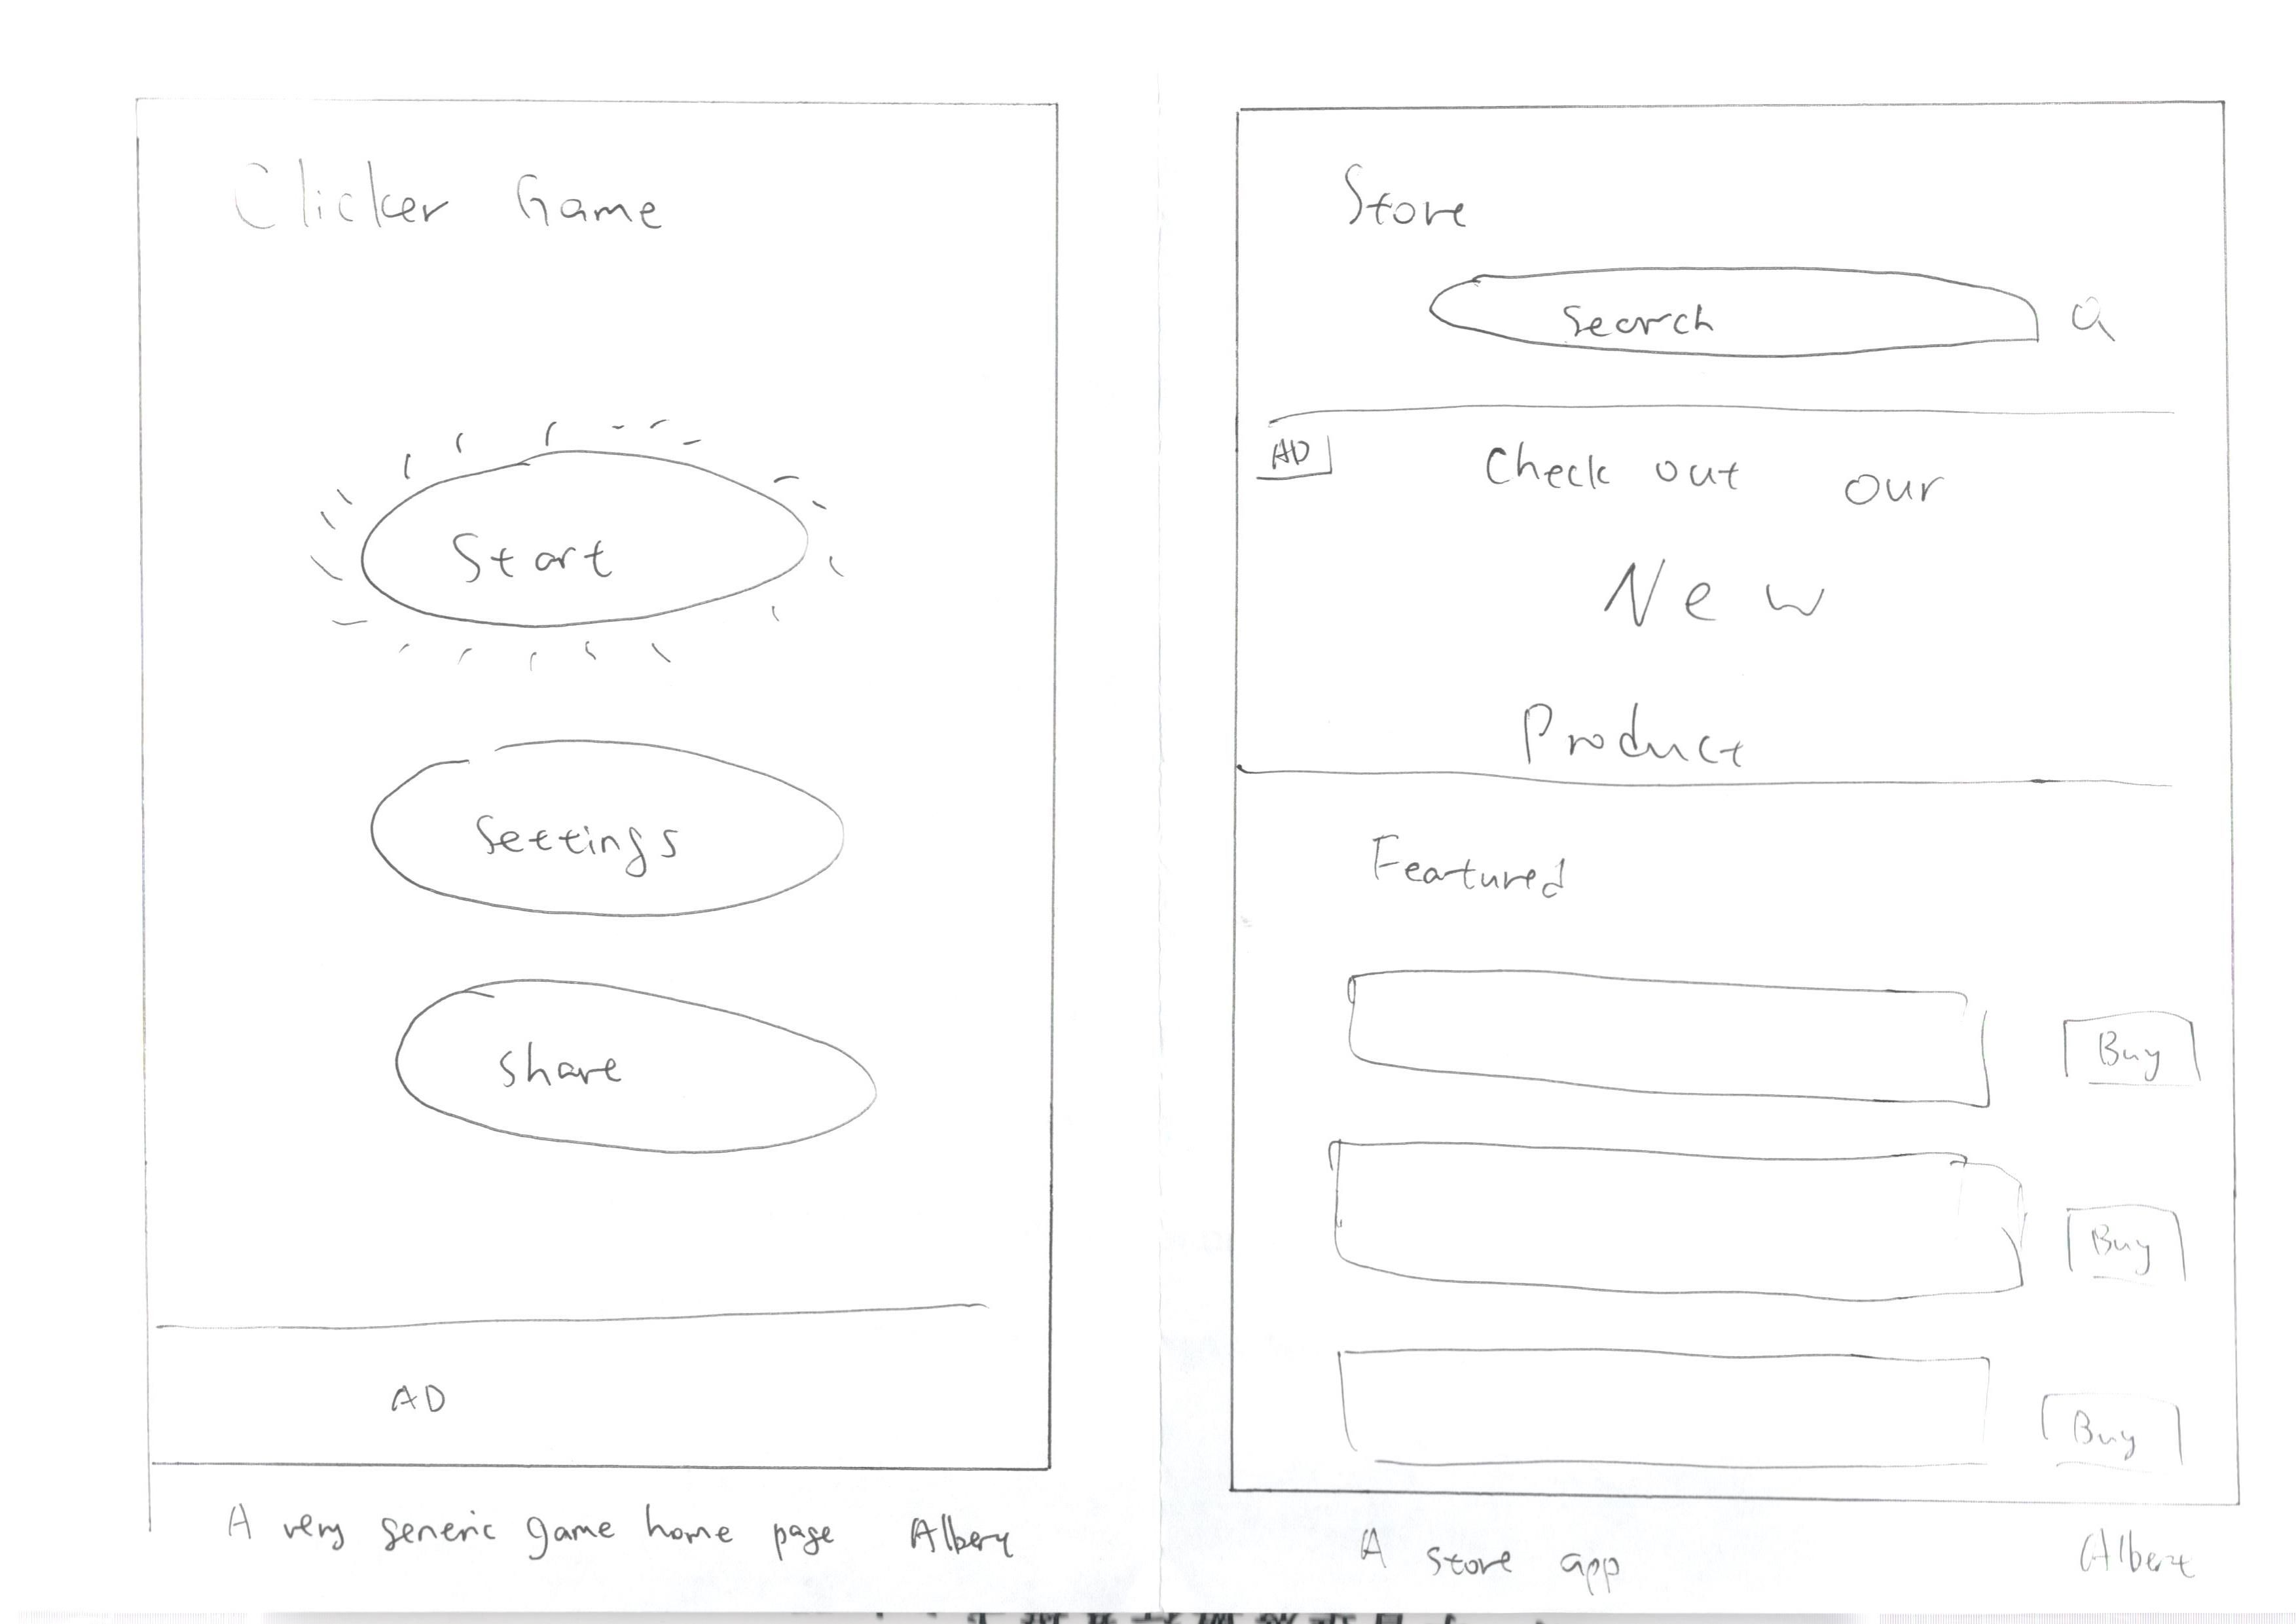 Clicker Game
Start
Settings
Share
AD
A very generic game home page Albert
Store
Search
AD
Check out our
New
Product
Featured
Buy
Buy
Buy
A store app Albert